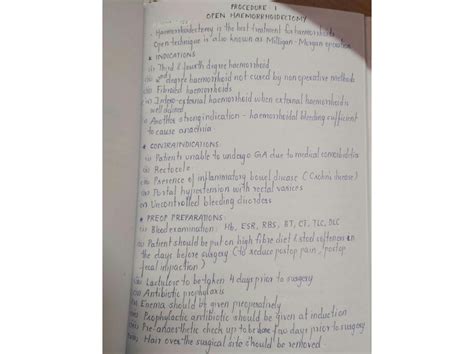 PROCEDURE : 1
OPEN HAEMORRHOIDECTOMY
- Haemorrhoidectomy is the best treatment for haemorrhoids
Open technique is also known as Milligan - Morgan operation
* INDICATIONS
(i) Third & fourth degree haemorrhoid
(ii) 2nd degree haemorrhoid not cured by non operative methods
(iii) Fibrosed haemorrhoids
(iv) Intero-external haemorrhoid when external haemorrhoid is
well defined
(v) Another strong indication - haemorrhoidal bleeding sufficient
to cause anaemia
* CONTRAINDICATIONS:
(i) Patients unable to undergo GA due to medical comorbidities
(ii) Rectocele
(iii) Presence of inflammatory bowel disease (Crohn's disease)
(iv) Portal hypertension with rectal varices
(v) Uncontrolled bleeding disorders
* PREOP PREPARATIONS:
(i) Blood examination: Hb, ESR, RBS, BT, CT, TLC, DLC
(ii) Patient should be put on high fibre diet & stool softener on
the days before surgery (to reduce postop pain, postop
fecal impaction)
(iii) Lactulose to be taken 4 days prior to surgery
(iv) Antibiotic prophylaxis
(v) Enema should be given preoperatively
Prophylactic antibiotic should be given at induction
Pre anaesthetic check up to be done few days prior to surgery
Hair over the surgical site should be removed